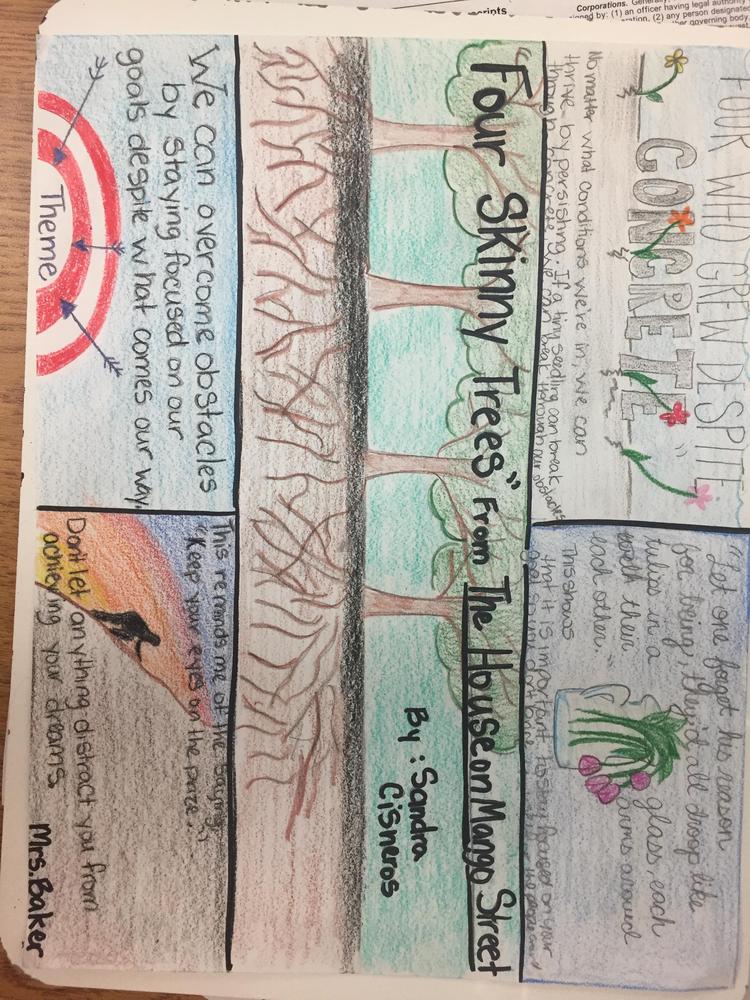 Corporations.
by: (1) an officer having legal authority
(2) any person designated
governing body
"FOUR WHO GREW DESPITE
CONCRETE"
No matter what conditions we're in, we can
thrive by persisting. If a tiny seedling can break
through concrete, we can break through our obstacles
"Let one forget his reason
for being, they'd all droop like
tulips in a glass, each
with their arms around
each other."
This shows
that it is important to stay focused on your
Four Skinny Trees" From The House on Mango Street
By: Sandra
Cisneros
We can overcome obstacles
by staying focused on our
goals despite what comes our way.
Theme
This reminds me of the saying,
"Keep your eyes on the prize."
Don't let anything distract you from
achieving your dreams
Mrs. Baker